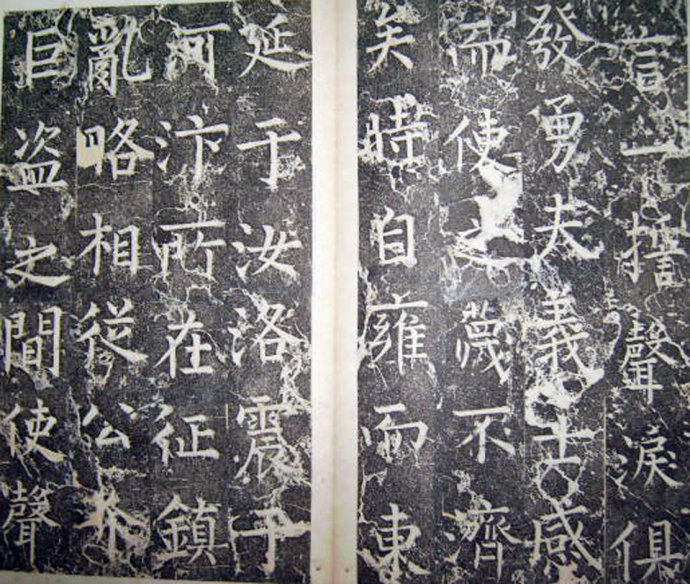 言一措聲淚俱
發勇夫義士感
而使之蔑不濟
矣時自雍而東
延于汝洛震于
河汴所在征鎮
亂略相從公不
目盜之間使聲